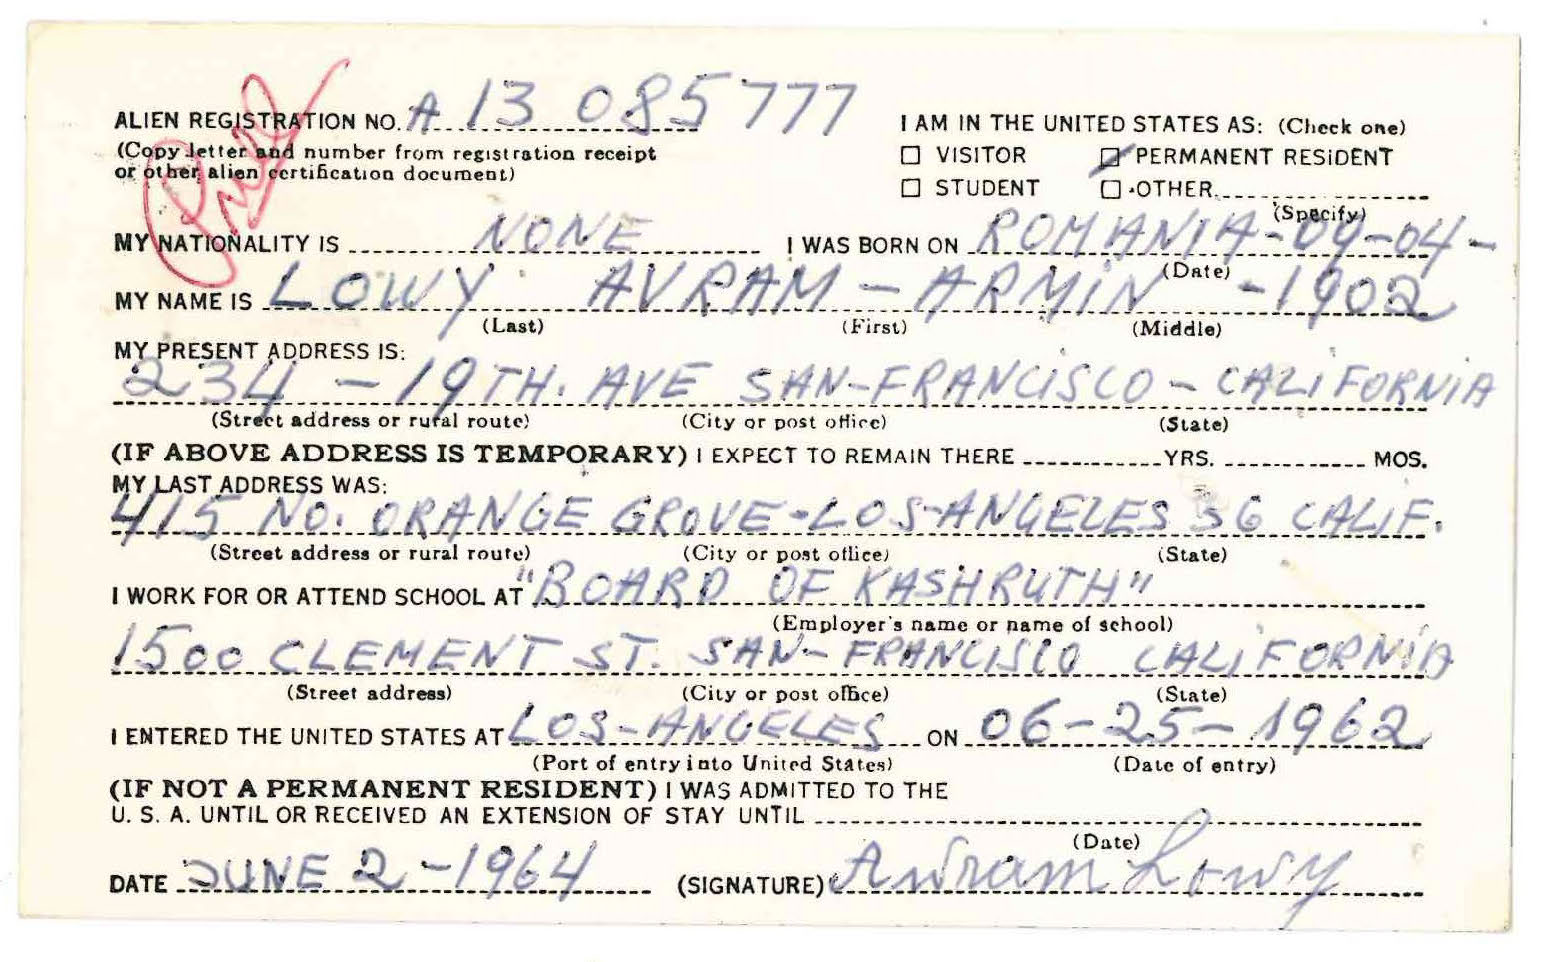 ALIEN REGISTRATION NO. A 13 085777
(Copy letter and number from registration receipt
or other alien certification document)
I AM IN THE UNITED STATES AS: (Check one)
VISITOR PERMANENT RESIDENT
STUDENT OTHER
(Specify)
MY NATIONALITY IS NONE I WAS BORN ON ROMANIA-09-04-
(Date)
MY NAME IS LOWY AVRAM - ARMIN -1902
(Last) (First) (Middle)
MY PRESENT ADDRESS IS:
234 - 19TH. AVE SAN-FRANCISCO - CALIFORNIA
(Street address or rural route) (City or post office) (State)
(IF ABOVE ADDRESS IS TEMPORARY) I EXPECT TO REMAIN THERE YRS. MOS.
MY LAST ADDRESS WAS:
415 NO. ORANGE GROVE-LOS-ANGELES 36 CALIF.
(Street address or rural route) (City or post office) (State)
I WORK FOR OR ATTEND SCHOOL AT "BOARD OF KASHRUTH"
(Employer's name or name of school)
1500 CLEMENT ST. SAN-FRANCISCO CALIFORNIA
(Street address) (City or post office) (State)
I ENTERED THE UNITED STATES AT LOS-ANGELES ON 06-25-1962
(Port of entry into United States) (Date of entry)
(IF NOT A PERMANENT RESIDENT) I WAS ADMITTED TO THE
U. S. A. UNTIL OR RECEIVED AN EXTENSION OF STAY UNTIL
(Date)
DATE JUNE 2-1964 (SIGNATURE) Avram Lowy